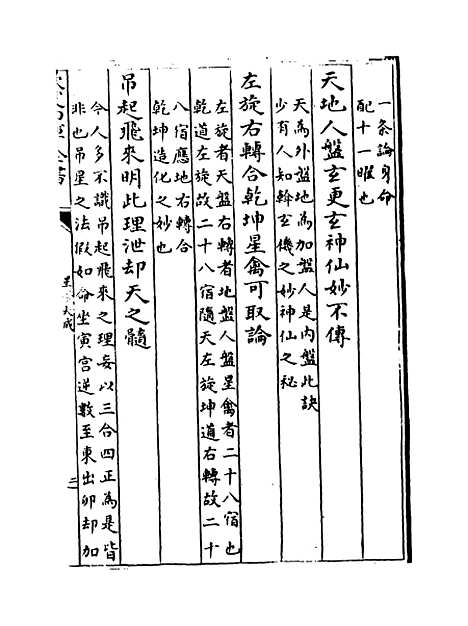 一条論身命
配十一曜也
天地人盤玄更玄神仙妙不傳
天為外盤地為加盤人是内盤此訣
少有人知斡玄機之妙神仙之秘
左旋右轉合乾坤星禽可取論
左旋者天盤右轉者地盤人盤星禽者二十八宿也
乾道左旋故二十八宿隨天左旋坤道右轉故二十
八宿應地右轉合
乾坤造化之妙也
吊起飛來明此理泄却天之髓
今人多不識吊起飛來之理妄以三合四正為是皆
非也吊星之法假如命坐寅宫逆數至東出卯却加
大成
二